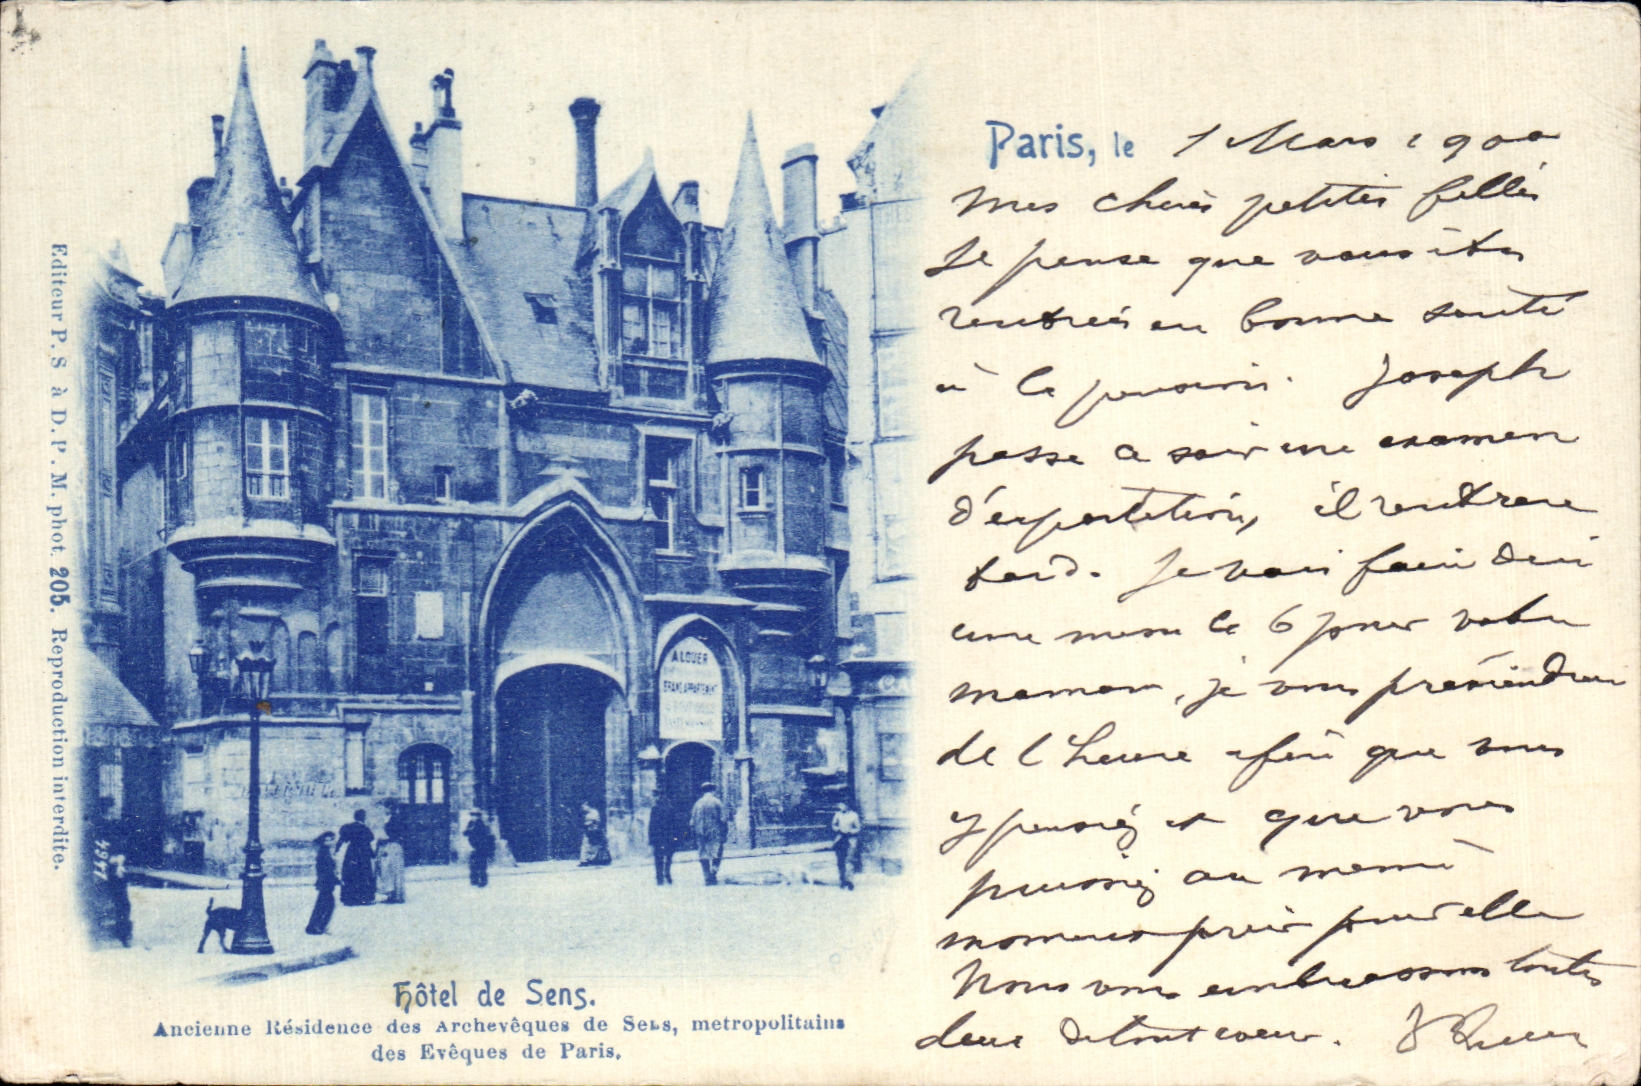 Paris, le 1 Mars 1900
Mes chères petites filles
Je pense que vous êtes
rentrées en bonne santé
à la pension. Joseph
passe ce soir un examen
d'exportation, il rentrera
tard. Je vais faire dire
une messe le 6 pour votre
maman, je vous préviendrai
de l'heure afin que vous
y pensiez et que vous
puissiez au même
moment prier pour elle
Nous vous embrassons toutes
deux de tout coeur.
Editeur P. S à D. P. M. phot. 205. Reproduction interdite.
A LOUER
GRAND APPARTEMENT
1464
Hôtel de Sens.
Ancienne Résidence des Archevêques de Sens, metropolitains
des Evêques de Paris.